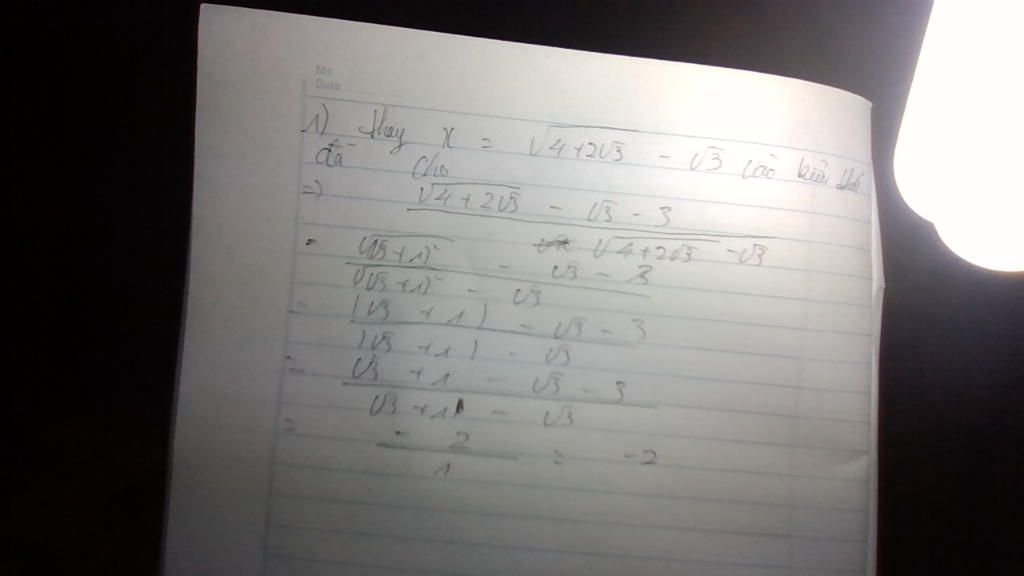 No.
Date
1) thay x = √(4+2√3) - √3 vào biểu thức
đã cho
=> (√(4+2√3) - √3 - 3) / (√(4+2√3) - √3)
= (√((√3+1)²) - √3 - 3) / (√((√3+1)²) - √3)
= (|√3 + 1| - √3 - 3) / (|√3 + 1| - √3)
= (√3 + 1 - √3 - 3) / (√3 + 1 - √3)
= -2 / 1 = -2